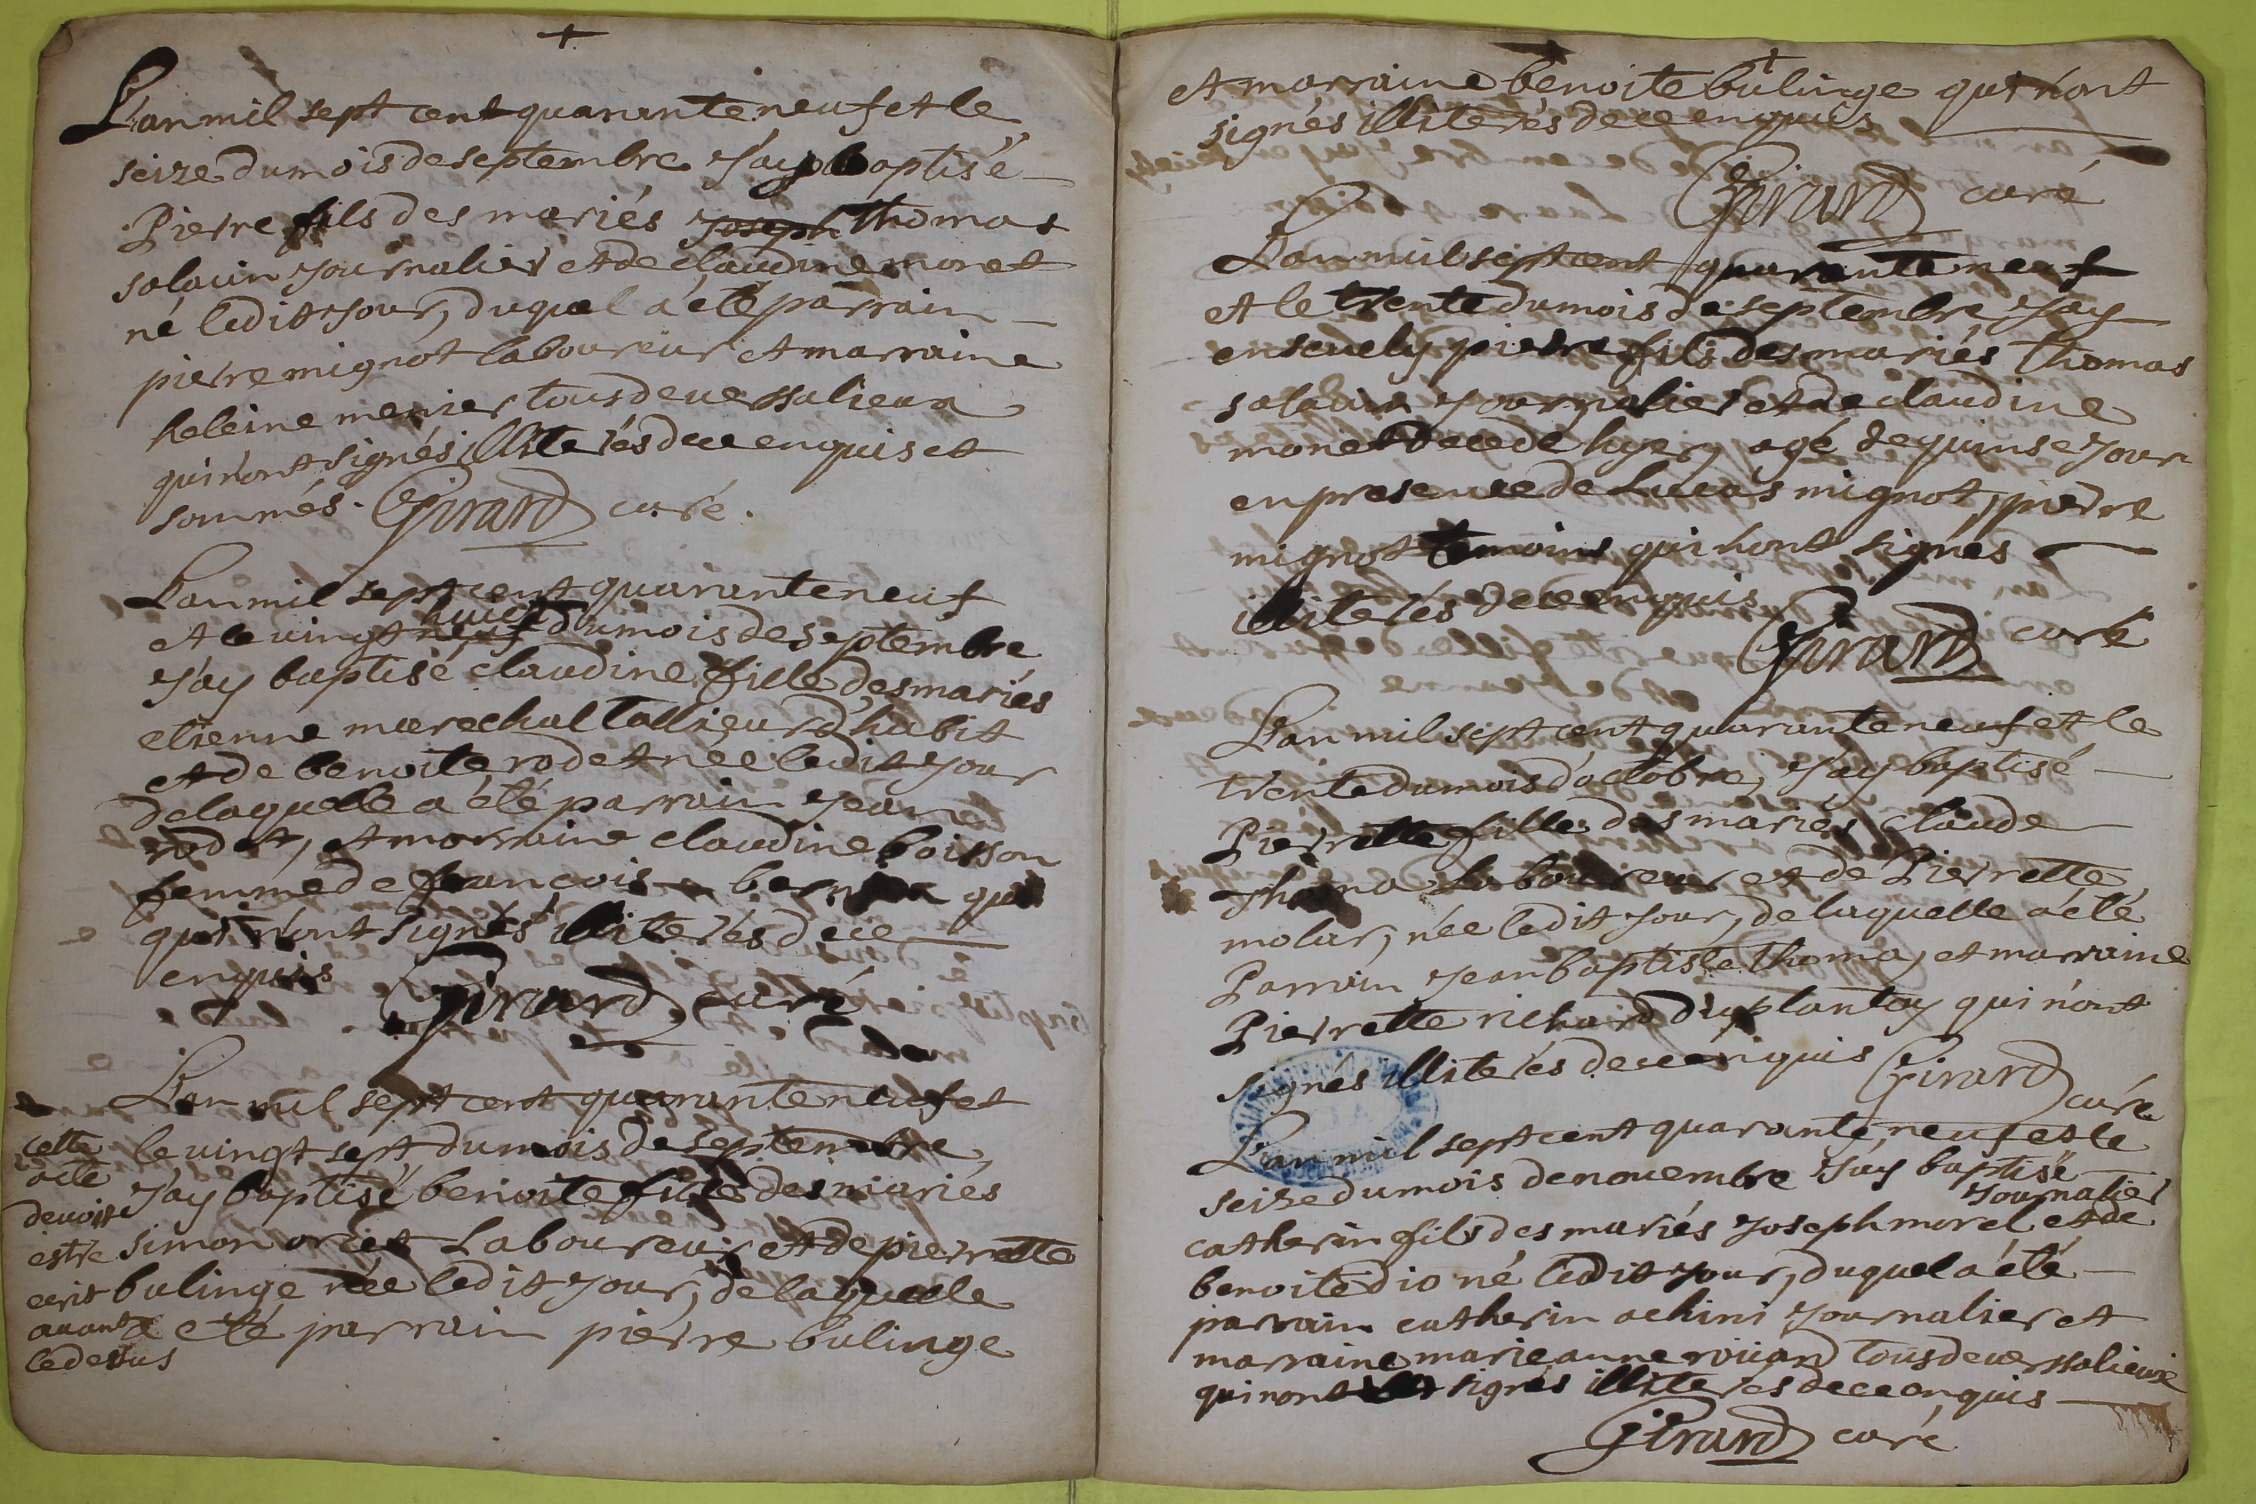 L'an mil sept cent quarante neuf et le
seize du mois de septembre J'ay baptisé
Pierre fils des mariés Joseph Thomas
salauin Journalier et de claudine monet
né ledit Jour, duquel a été parrain
pierre mignot laboureur et marraine
heleine menier tous de uerssalieux
qui n'ont signés illiterés de ce enquis et
sommés. Girard curé.
L'an mil sept cent quarante neuf
et le vingt neuf huict du mois de septembre
J'ay baptisé claudine fille des mariés
etienne marechal tallieur d'habit
et de benoite rodet née ledit Jour
de laquelle a été parrain Jean
rodet, et marraine claudine boisson
femme de francois qui
qui n'ont signés illiterés de ce
enquis Girard curé
L'an mil sept cent quarante neuf et
le vingt sept du mois de septembre,
J'ay baptisé benoite fille des mariés
simon oriet Laboureur et de pierrette
bulinge née ledit Jour, de laquelle
a été parrain pierre bulinge
cette
acte
devoit
estre
ecrit
auant
le dessus
et marraine benoite bulinge qui n'ont
signés illiterés de ce enquis
Girard curé
L'an mil sept cent quarante neuf
et le trente du mois de septembre, J'ay
enseuely pierre fils des mariés Thomas
salauin Journalier et de claudine
monet decedé hyer, agé de quinse Jour
en presence de Lucas mignot, pierre
mignot temoins qui n'ont signés
illiterés de ce enquis
Girard curé
L'an mil sept cent quarante neuf et le
trente du mois d'octobre, J'ay baptisé
Pierrette fille des mariés claude
Thoma Laboureur et de Pierrette
molar, née ledit Jour, de laquelle a été
Parrain Jean baptiste Thoma, et marraine
Pierrette richard du plantay qui n'ont
signés illiterés de ce enquis Girard
curé
L'an mil sept cent quarante neuf et le
seize du mois de nouembre J'ay baptisé
Journalier
catherin fils des mariés Joseph morel et de
benoite dio né ledit Jour, duquel a été
parrain catherin achini Journalier et
marraine marieanne roüard tous de uerssalieux
qui n'ont signés illiterés de ce enquis
Girard curé